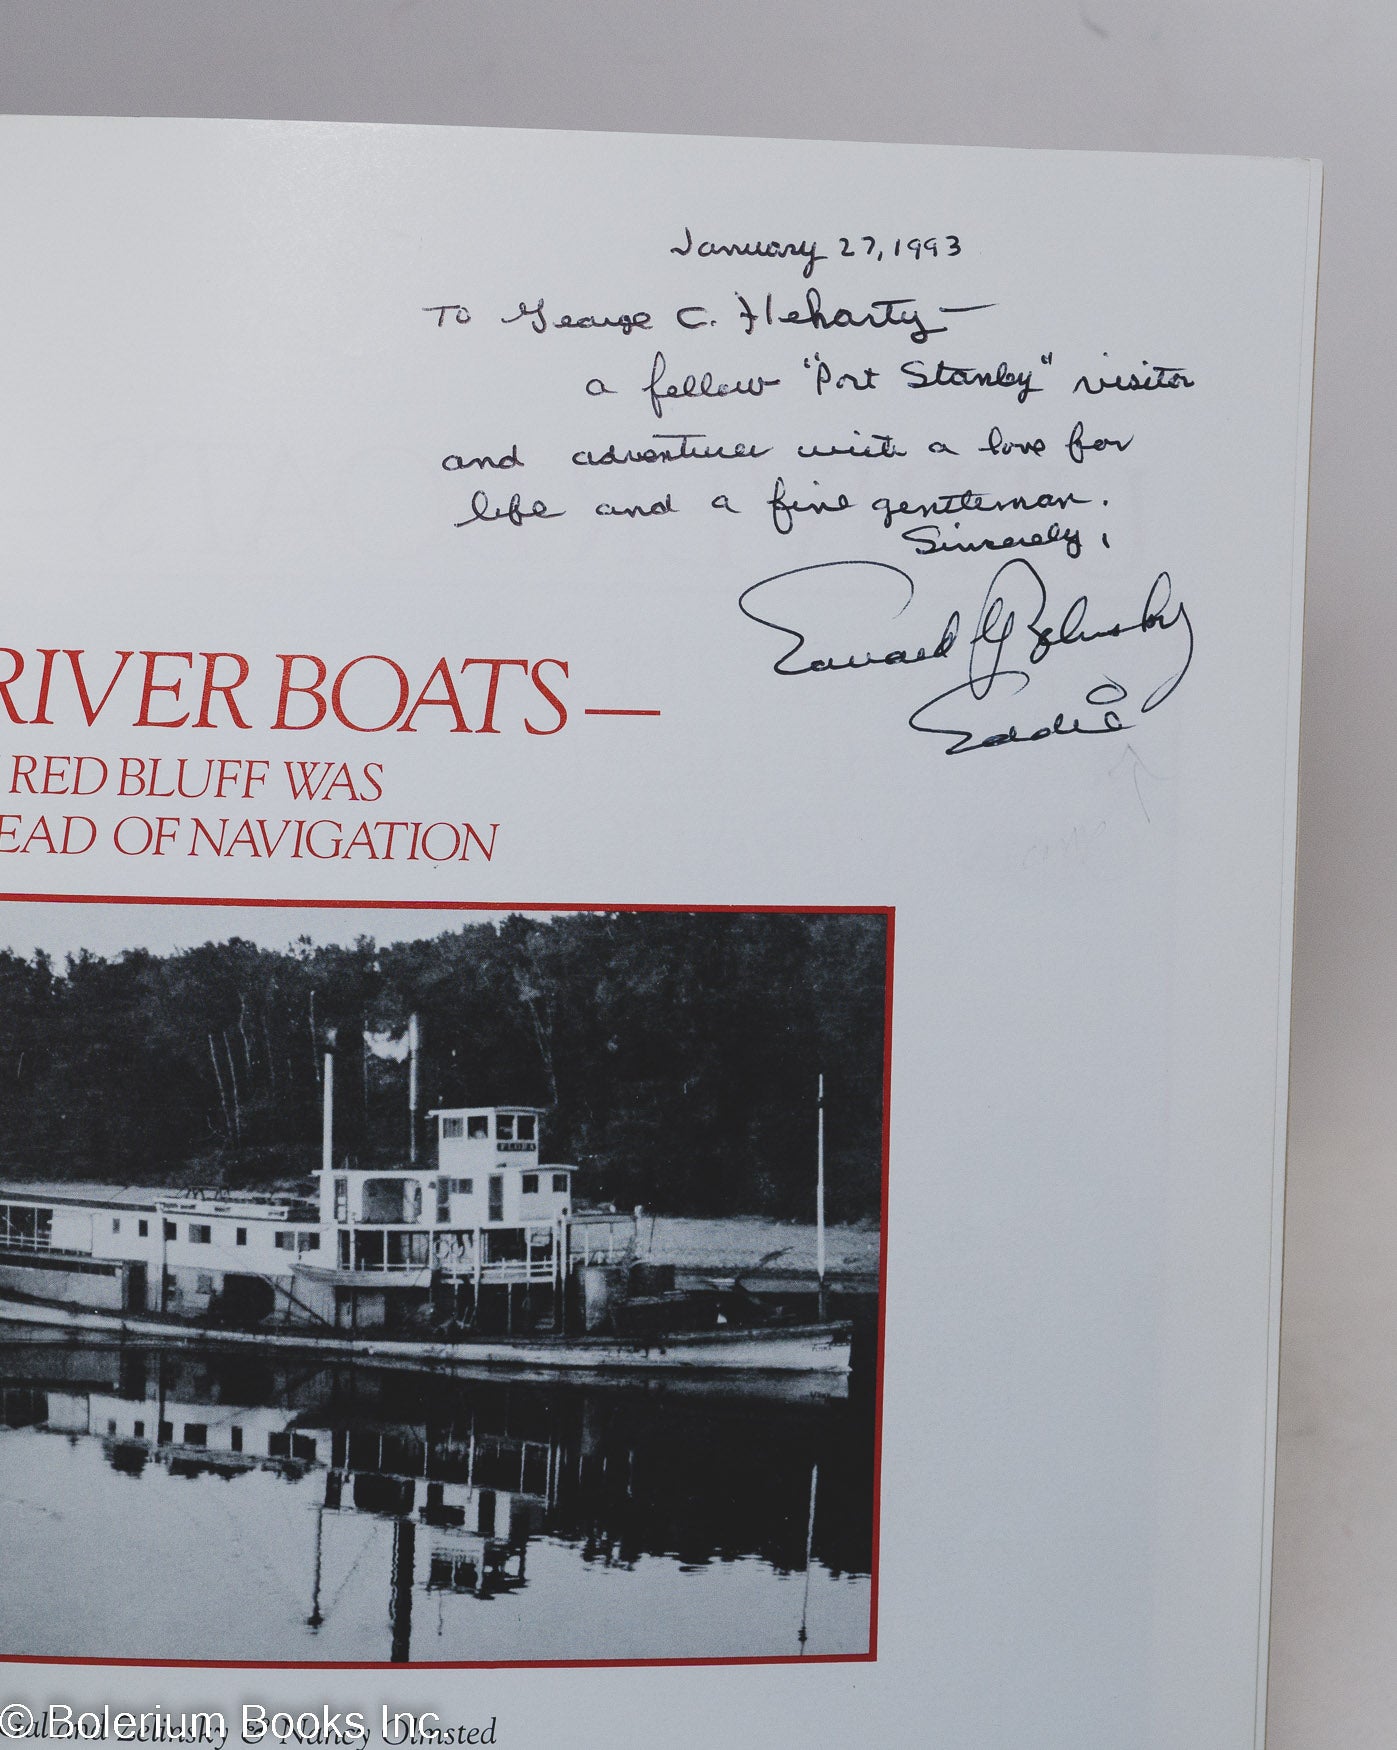 January 27, 1993
To George C. Fleharty —
a fellow "Port Stanley" visitor
and adventurer with a love for
life and a fine gentleman.
Sincerely,
Edward G Zelinsky
Eddie
RIVER BOATS—
RED BLUFF WAS
EAD OF NAVIGATION
FLORA
Galland Zelinsky & Nancy Olmsted
© Bolerium Books Inc.